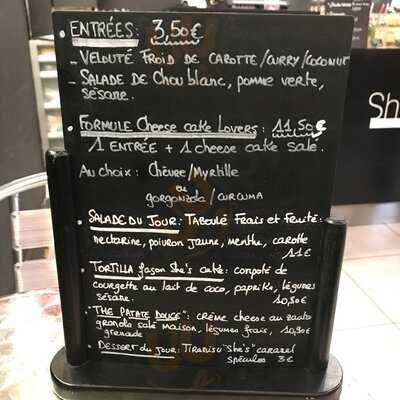 ENTRÉES: 3,50€
- VELOUTÉ FROID DE CAROTTE/CURRY/COCONUT
- SALADE DE Chou blanc, pomme verte,
sésame.
FORMULE Cheese cake Lovers: 11,50€
1 ENTRÉE + 1 cheese cake salé.
Au choix: Chèvre/Myrtille
ou
gorgonzola/CURCUMA
SALADE DU JOUR: TABOULÉ FRAIS et FRUITÉ:
nectarine, poivron jaune, menthe, carotte
11€
TORTILLA façon She's cake: compoté de
courgette au lait de coco, paprika, légumes
sésame. 10,50€
"THE PATATE DOUCE": CRÈME cheese au
granola salé maison, légumes frais, 10,90€
grenade
DESSERT du JOUR: TIRAMISU "She's" caramel
spéculos 3€
Sh